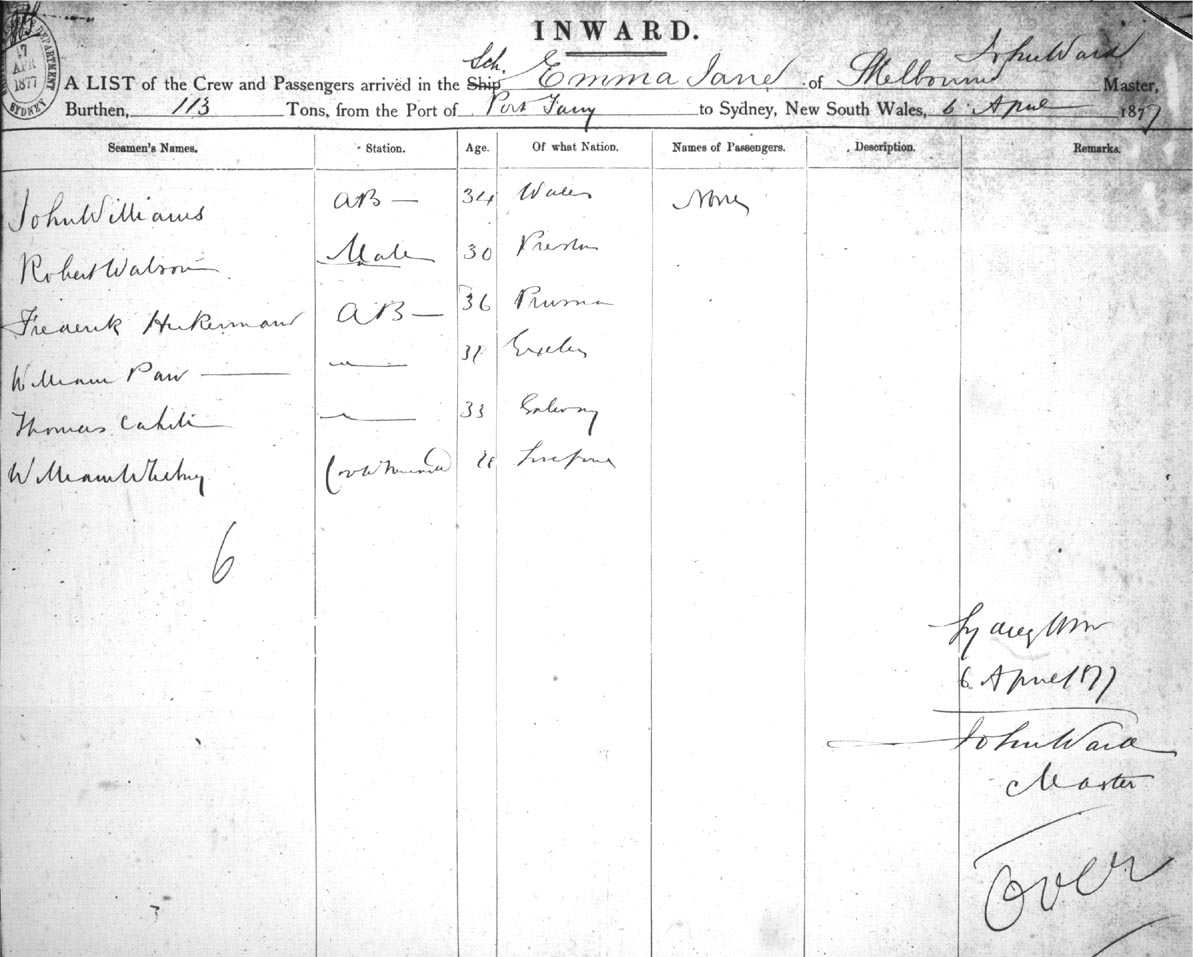 DEPARTMENT
17
APR
1877
SYDNEY
INWARD.
Sch. John Ward
A LIST of the Crew and Passengers arrived in the Ship Emma Jane of Melbourne Master,
Burthen, 113 Tons, from the Port of Port Fairy to Sydney, New South Wales, 6 April 1877
Seamen's Names. Station. Age. Of what Nation. Names of Passengers. Description. Remarks.
John Williams AB 34 Wales None
Robert Watson Mate 30 Preston
Frederik AB 36
William Exeter
Thomas Cahill 33 Galway
William
6
6 April 1877
John Ward
Master
Over